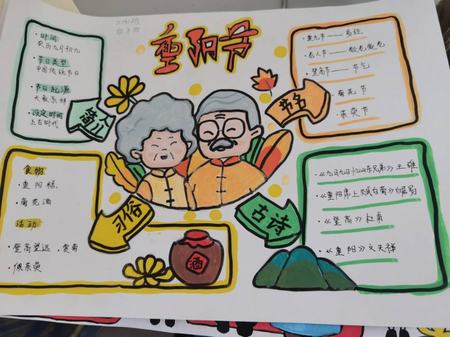 重阳节
简介
·时间
农历九月初九
·节日类型
中国传统节日
·节日起源
·设定时间
上古时代
节名
·重九节——
·老人节——敬老爱老
·登高节——节气
·菊花节
·茱萸节
习俗
食物
·重阳糕
·菊花酒
活动
·登高望远 ·赏菊
·佩茱萸
古诗
·《九月九日忆山东兄弟》王维
·《登高》杜甫
·《重阳》文天祥
酒